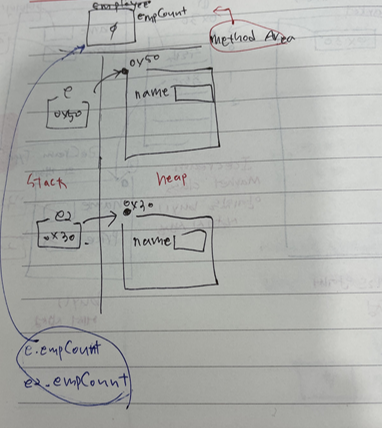 Employee
empCount
0
method Area
0x50
e
name
0x50
Stack
heap
0x30
e2
0x30
name
e.empCount
e2.empCount